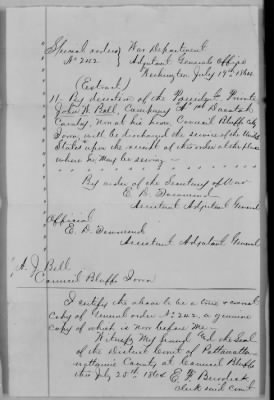 Special orders } War Department
No 242 } Adjutant Generals Office
Washington July 19th 1864
(Extract)
11. By direction of the President, Private
John W. Bell, Company
County, now at his home, Council Bluffs City
Iowa, will be discharged the service of the United
States upon the receipt of this order at the place
where he may be serving —
By order of the Secretary of War
E. D. Townsend
Assistant Adjutant General
Official
E. D. Townsend
Assistant Adjutant General
A. J. Bell
Council Bluffs Iowa
I certify the above to be a true & correct
copy of General order No 242, a genuine
copy of which is now before me —
Witness my hand and the Seal
of the District Court of Pottawatta-
mie County at Council Bluffs
this July 28th 1864 E. F. Burdick
clerk said court